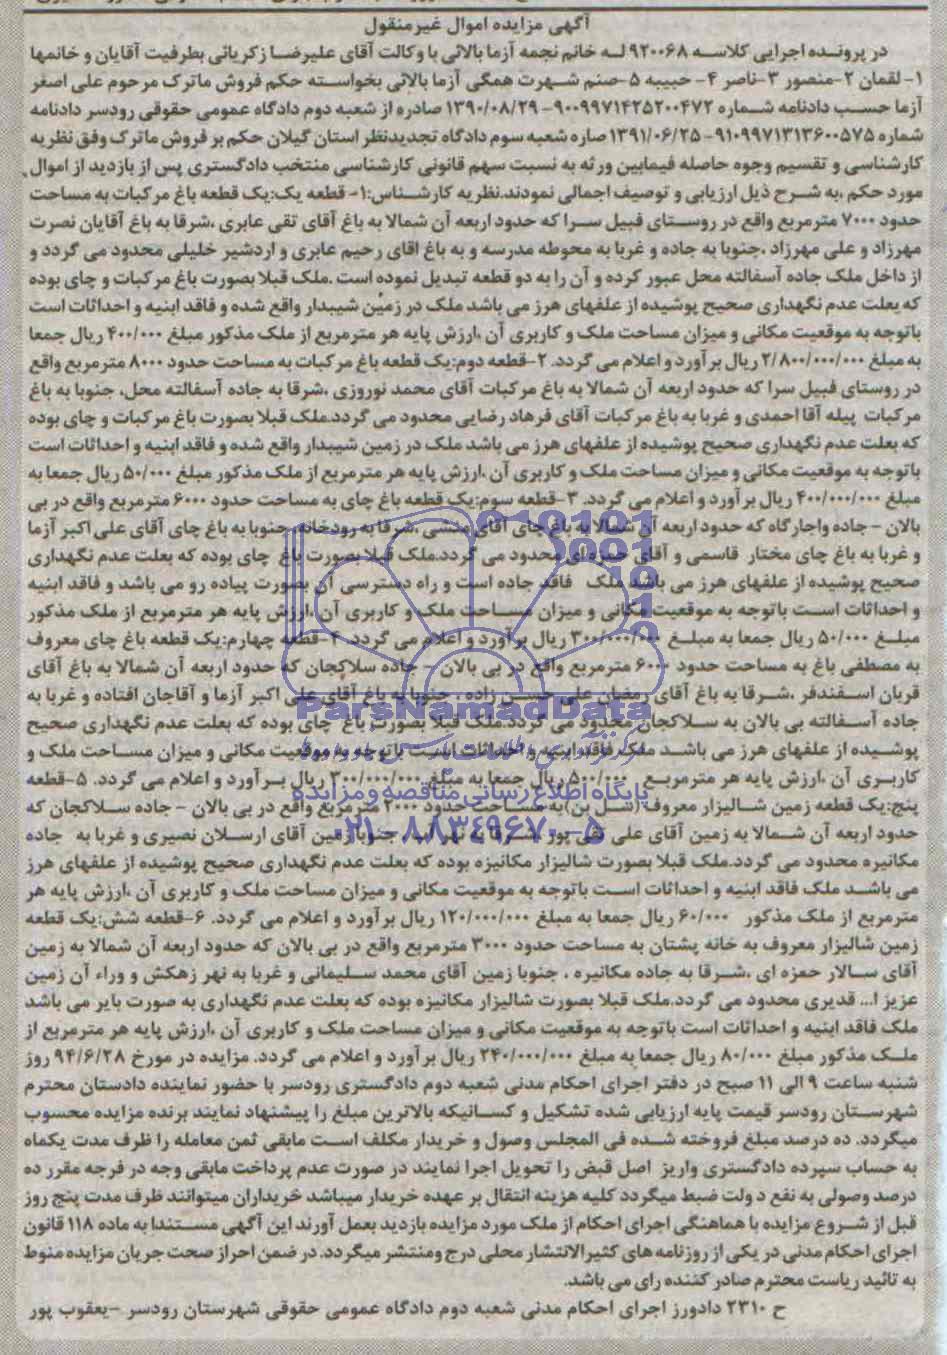 آگهی مزایده اموال غیرمنقول
در پرونده اجرایی کلاسه ۹۲۰۰۶۸ له خانم نجمه آزما بالائی با وکالت آقای علیرضا زکریائی بطرفیت آقایان و خانمها
۱- لقمان ۲-منصور ۳-ناصر ۴- حبیبه ۵-صنم شهرت همگی آزما بالائی بخواسته حکم فروش ماترک مرحوم علی اصغر
آزما حسب دادنامه شماره ۹۰۰۹۹۷۱۴۲۵۲۰۰۴۷۲-۱۳۹۰/۰۸/۲۹ صادره از شعبه دوم دادگاه عمومی حقوقی رودسر دادنامه
شماره ۹۱۰۹۹۷۱۳۱۳۶۰۰۵۷۵-۱۳۹۱/۰۶/۲۵ صاره شعبه سوم دادگاه تجدیدنظر استان گیلان حکم بر فروش ماترک وفق نظریه
کارشناسی و تقسیم وجوه حاصله فیمابین ورثه به نسبت سهم قانونی کارشناسی منتخب دادگستری پس از بازدید از اموال
مورد حکم ،به شرح ذیل ارزیابی و توصیف اجمالی نمودند.نظریه کارشناس:۱- قطعه یک:یک قطعه باغ مرکبات به مساحت
حدود ۷۰۰۰ مترمربع واقع در روستای فبیل سرا که حدود اربعه آن شمالا به باغ آقای تقی عابری ،شرقا به باغ آقایان نصرت
مهرزاد و علی مهرزاد ،جنوبا به جاده و غربا به محوطه مدرسه و به باغ اقای رحیم عابری و اردشیر خلیلی محدود می گردد و
از داخل ملک جاده آسفالته محل عبور کرده و آن را به دو قطعه تبدیل نموده است .ملک قبلا بصورت باغ مرکبات و چای بوده
که بعلت عدم نگهداری صحیح پوشیده از علفهای هرز می باشد ملک در زمین شیبدار واقع شده و فاقد ابنیه و احداثات است
باتوجه به موقعیت مکانی و میزان مساحت ملک و کاربری آن ،ارزش پایه هر مترمربع از ملک مذکور مبلغ ۴۰۰/۰۰۰ ریال جمعا
به مبلغ ۲/۸۰۰/۰۰۰/۰۰۰ ریال برآورد و اعلام می گردد. ۲-قطعه دوم:یک قطعه باغ مرکبات به مساحت حدود ۸۰۰۰ مترمربع واقع
در روستای فبیل سرا که حدود اربعه آن شمالا به باغ مرکبات آقای محمد نوروزی ،شرقا به جاده آسفالته محل، جنوبا به باغ
مرکبات پیله آقا احمدی و غربا به باغ مرکبات آقای فرهاد رضایی محدود می گردد.ملک قبلا بصورت باغ مرکبات و چای بوده
که بعلت عدم نگهداری صحیح پوشیده از علفهای هرز می باشد ملک در زمین شیبدار واقع شده و فاقد ابنیه و احداثات است
باتوجه به موقعیت مکانی و میزان مساحت ملک و کاربری آن ،ارزش پایه هر مترمربع از ملک مذکور مبلغ ۵۰/۰۰۰ ریال جمعا به
مبلغ ۴۰۰/۰۰۰/۰۰۰ ریال برآورد و اعلام می گردد. ۳-قطعه سوم:یک قطعه باغ چای به مساحت حدود ۶۰۰۰ مترمربع واقع در بی
بالان - جاده واجارگاه که حدود اربعه آن شمالا به باغ چای آقای منشی ،شرقا به رودخانه ،جنوبا به باغ چای آقای علی اکبر آزما
و غربا به باغ چای مختار قاسمی و آقای حمزه ای محدود می گردد.ملک قبلا بصورت باغ چای بوده که بعلت عدم نگهداری
صحیح پوشیده از علفهای هرز می باشد ملک فاقد جاده است و راه دسترسی آن بصورت پیاده رو می باشد و فاقد ابنیه
و احداثات است باتوجه به موقعیت مکانی و میزان مساحت ملک و کاربری آن ،ارزش پایه هر مترمربع از ملک مذکور
مبلغ ۵۰/۰۰۰ ریال جمعا به مبلغ ۳۰۰/۰۰۰/۰۰۰ ریال برآورد و اعلام می گردد. ۴-قطعه چهارم:یک قطعه باغ چای معروف
به مصطفی باغ به مساحت حدود ۶۰۰۰ مترمربع واقع در بی بالان - جاده سلاکجان که حدود اربعه آن شمالا به باغ آقای
قربان اسفندفر ،شرقا به باغ آقای رمضان علی حسن زاده ، جنوبا به باغ آقای علی اکبر آزما و آقاجان افتاده و غربا به
جاده آسفالته بی بالان به سلاکجان محدود می گردد.ملک قبلا بصورت باغ چای بوده که بعلت عدم نگهداری صحیح
پوشیده از علفهای هرز می باشد ملک فاقد ابنیه و احداثات است باتوجه به موقعیت مکانی و میزان مساحت ملک و
کاربری آن ،ارزش پایه هر مترمربع ۵۰۰/۰۰۰ ریال جمعا به مبلغ ۳۰۰/۰۰۰/۰۰۰ ریال برآورد و اعلام می گردد. ۵-قطعه
پنج:یک قطعه زمین شالیزار معروف (شل بن)به مساحت حدود ۲۰۰۰ مترمربع واقع در بی بالان - جاده سلاکجان که
حدود اربعه آن شمالا به زمین آقای علی تقی پور ،شرقا به نهر آب ، جنوبا زمین آقای ارسلان نصیری و غربا به جاده
مکانیره محدود می گردد.ملک قبلا بصورت شالیزار مکانیزه بوده که بعلت عدم نگهداری صحیح پوشیده از علفهای هرز
می باشد ملک فاقد ابنیه و احداثات است باتوجه به موقعیت مکانی و میزان مساحت ملک و کاربری آن ،ارزش پایه هر
مترمربع از ملک مذکور ۶۰/۰۰۰ ریال جمعا به مبلغ ۱۲۰/۰۰۰/۰۰۰ ریال برآورد و اعلام می گردد. ۶-قطعه شش:یک قطعه
زمین شالیزار معروف به خانه پشتان به مساحت حدود ۳۰۰۰ مترمربع واقع در بی بالان که حدود اربعه آن شمالا به زمین
آقای سالار حمزه ای ،شرقا به جاده مکانیره ، جنوبا زمین آقای محمد سلیمانی و غربا به نهر زهکش و وراء آن زمین
عزیز ا... قدیری محدود می گردد.ملک قبلا بصورت شالیزار مکانیزه بوده که بعلت عدم نگهداری به صورت بایر می باشد
ملک فاقد ابنیه و احداثات است باتوجه به موقعیت مکانی و میزان مساحت ملک و کاربری آن ،ارزش پایه هر مترمربع از
ملک مذکور مبلغ ۸۰/۰۰۰ ریال جمعا به مبلغ ۲۴۰/۰۰۰/۰۰۰ ریال برآورد و اعلام می گردد. مزایده در مورخ ۹۴/۶/۲۸ روز
شنبه ساعت ۹ الی ۱۱ صبح در دفتر اجرای احکام مدنی شعبه دوم دادگستری رودسر با حضور نماینده دادستان محترم
شهرستان رودسر قیمت پایه ارزیابی شده تشکیل و کسانیکه بالاترین مبلغ را پیشنهاد نمایند برنده مزایده محسوب
میگردد. ده درصد مبلغ فروخته شده فی المجلس وصول و خریدار مکلف است مابقی ثمن معامله را ظرف مدت یکماه
به حساب سپرده دادگستری واریز اصل قبض را تحویل اجرا نمایند در صورت عدم پرداخت مابقی وجه در فرجه مقرر ده
درصد وصولی به نفع دولت ضبط میگردد کلیه هزینه انتقال بر عهده خریدار میباشد خریداران میتوانند ظرف مدت پنج روز
قبل از شروع مزایده با هماهنگی اجرای احکام از ملک مورد مزایده بازدید بعمل آورند این آگهی مستندا به ماده ۱۱۸ قانون
اجرای احکام مدنی در یکی از روزنامه های کثیرالانتشار محلی درج ومنتشر میگردد. در ضمن احراز صحت جریان مزایده منوط
به تائید ریاست محترم صادر کننده رای می باشد.
ح ۲۳۱۰ دادورز اجرای احکام مدنی شعبه دوم دادگاه عمومی حقوقی شهرستان رودسر -یعقوب پور
ParsNamadData
پایگاه اطلاع رسانی مناقصه و مزایده
۰۲۱-۸۸۳۴۹۶۷۰-۵